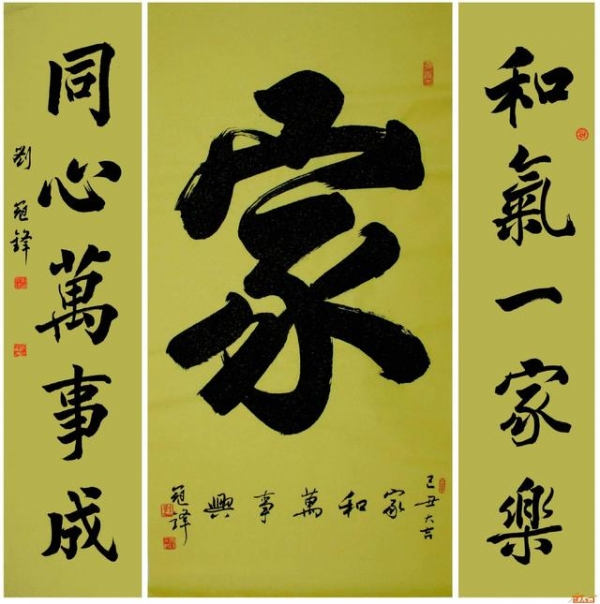 和氣一家樂
家
己丑大吉
家和萬事興
冠鋒
同心萬事成
劉冠鋒